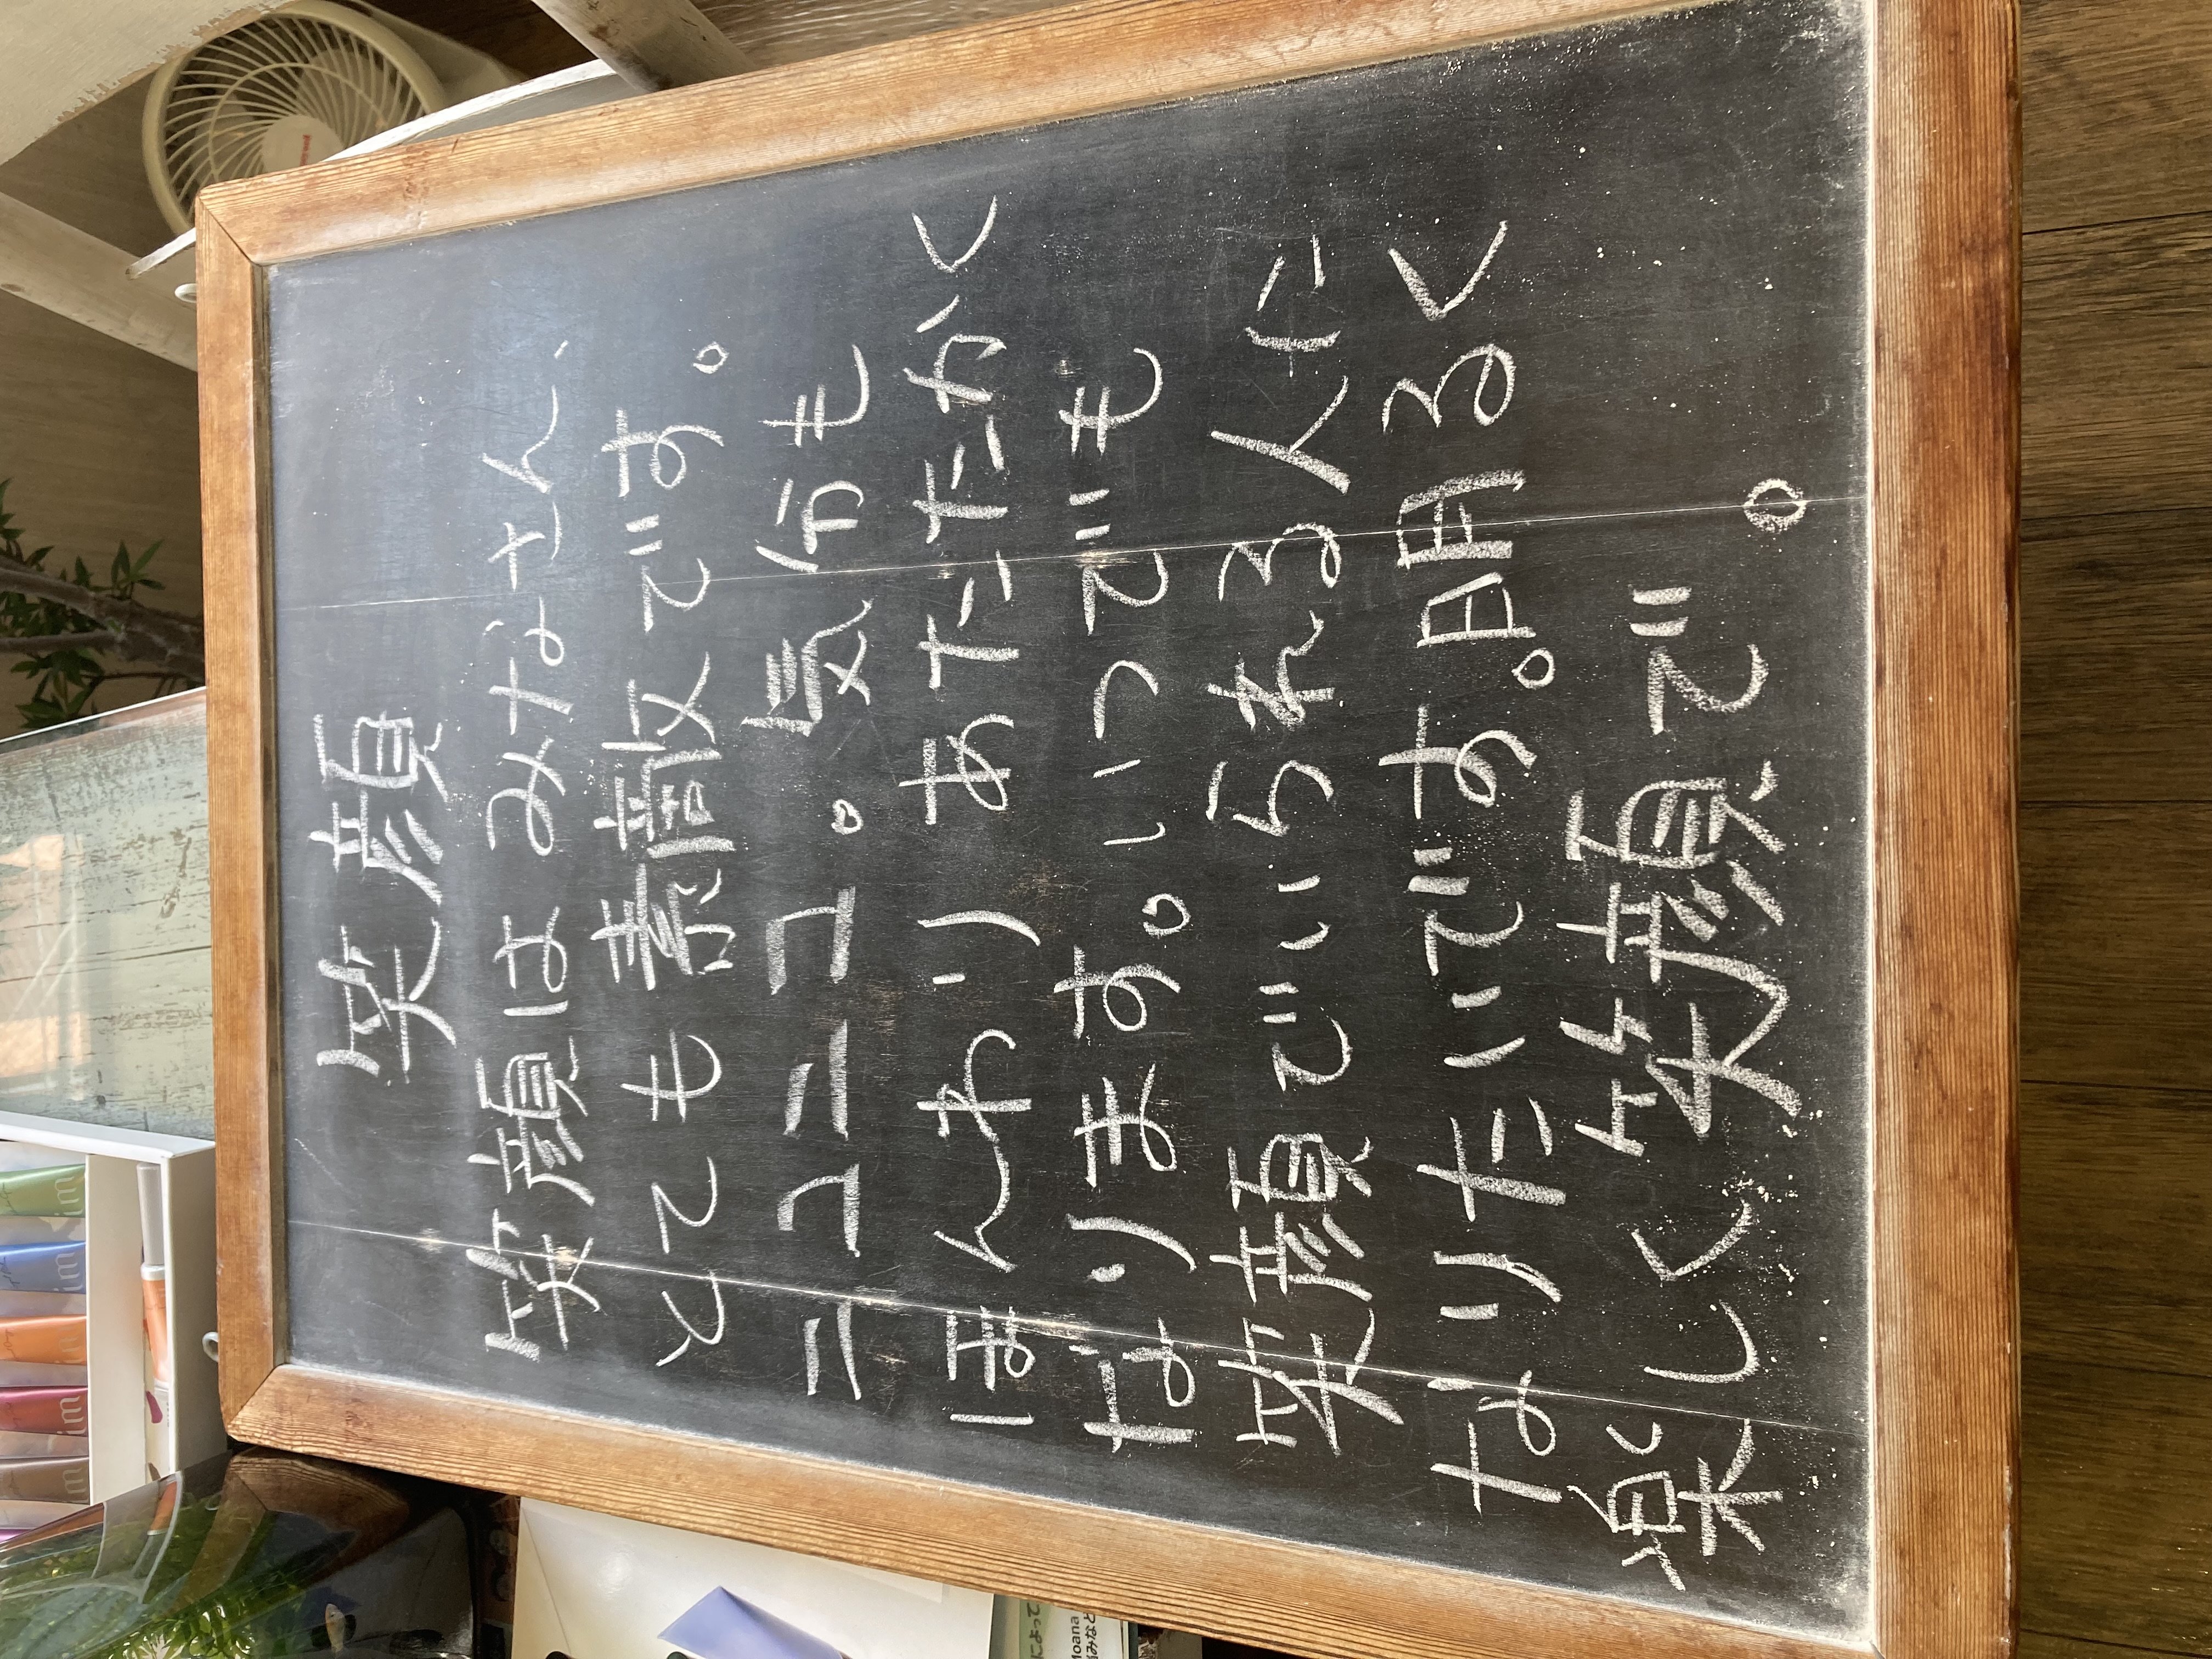 笑顔
笑顔はみなさん、
とても素敵です。
ニコニコ。気分も
ほんわりあたたかく
なります。いつでも
笑顔でいられる人に
なりたいです。明るく
楽しく笑顔で。
によって
Moana